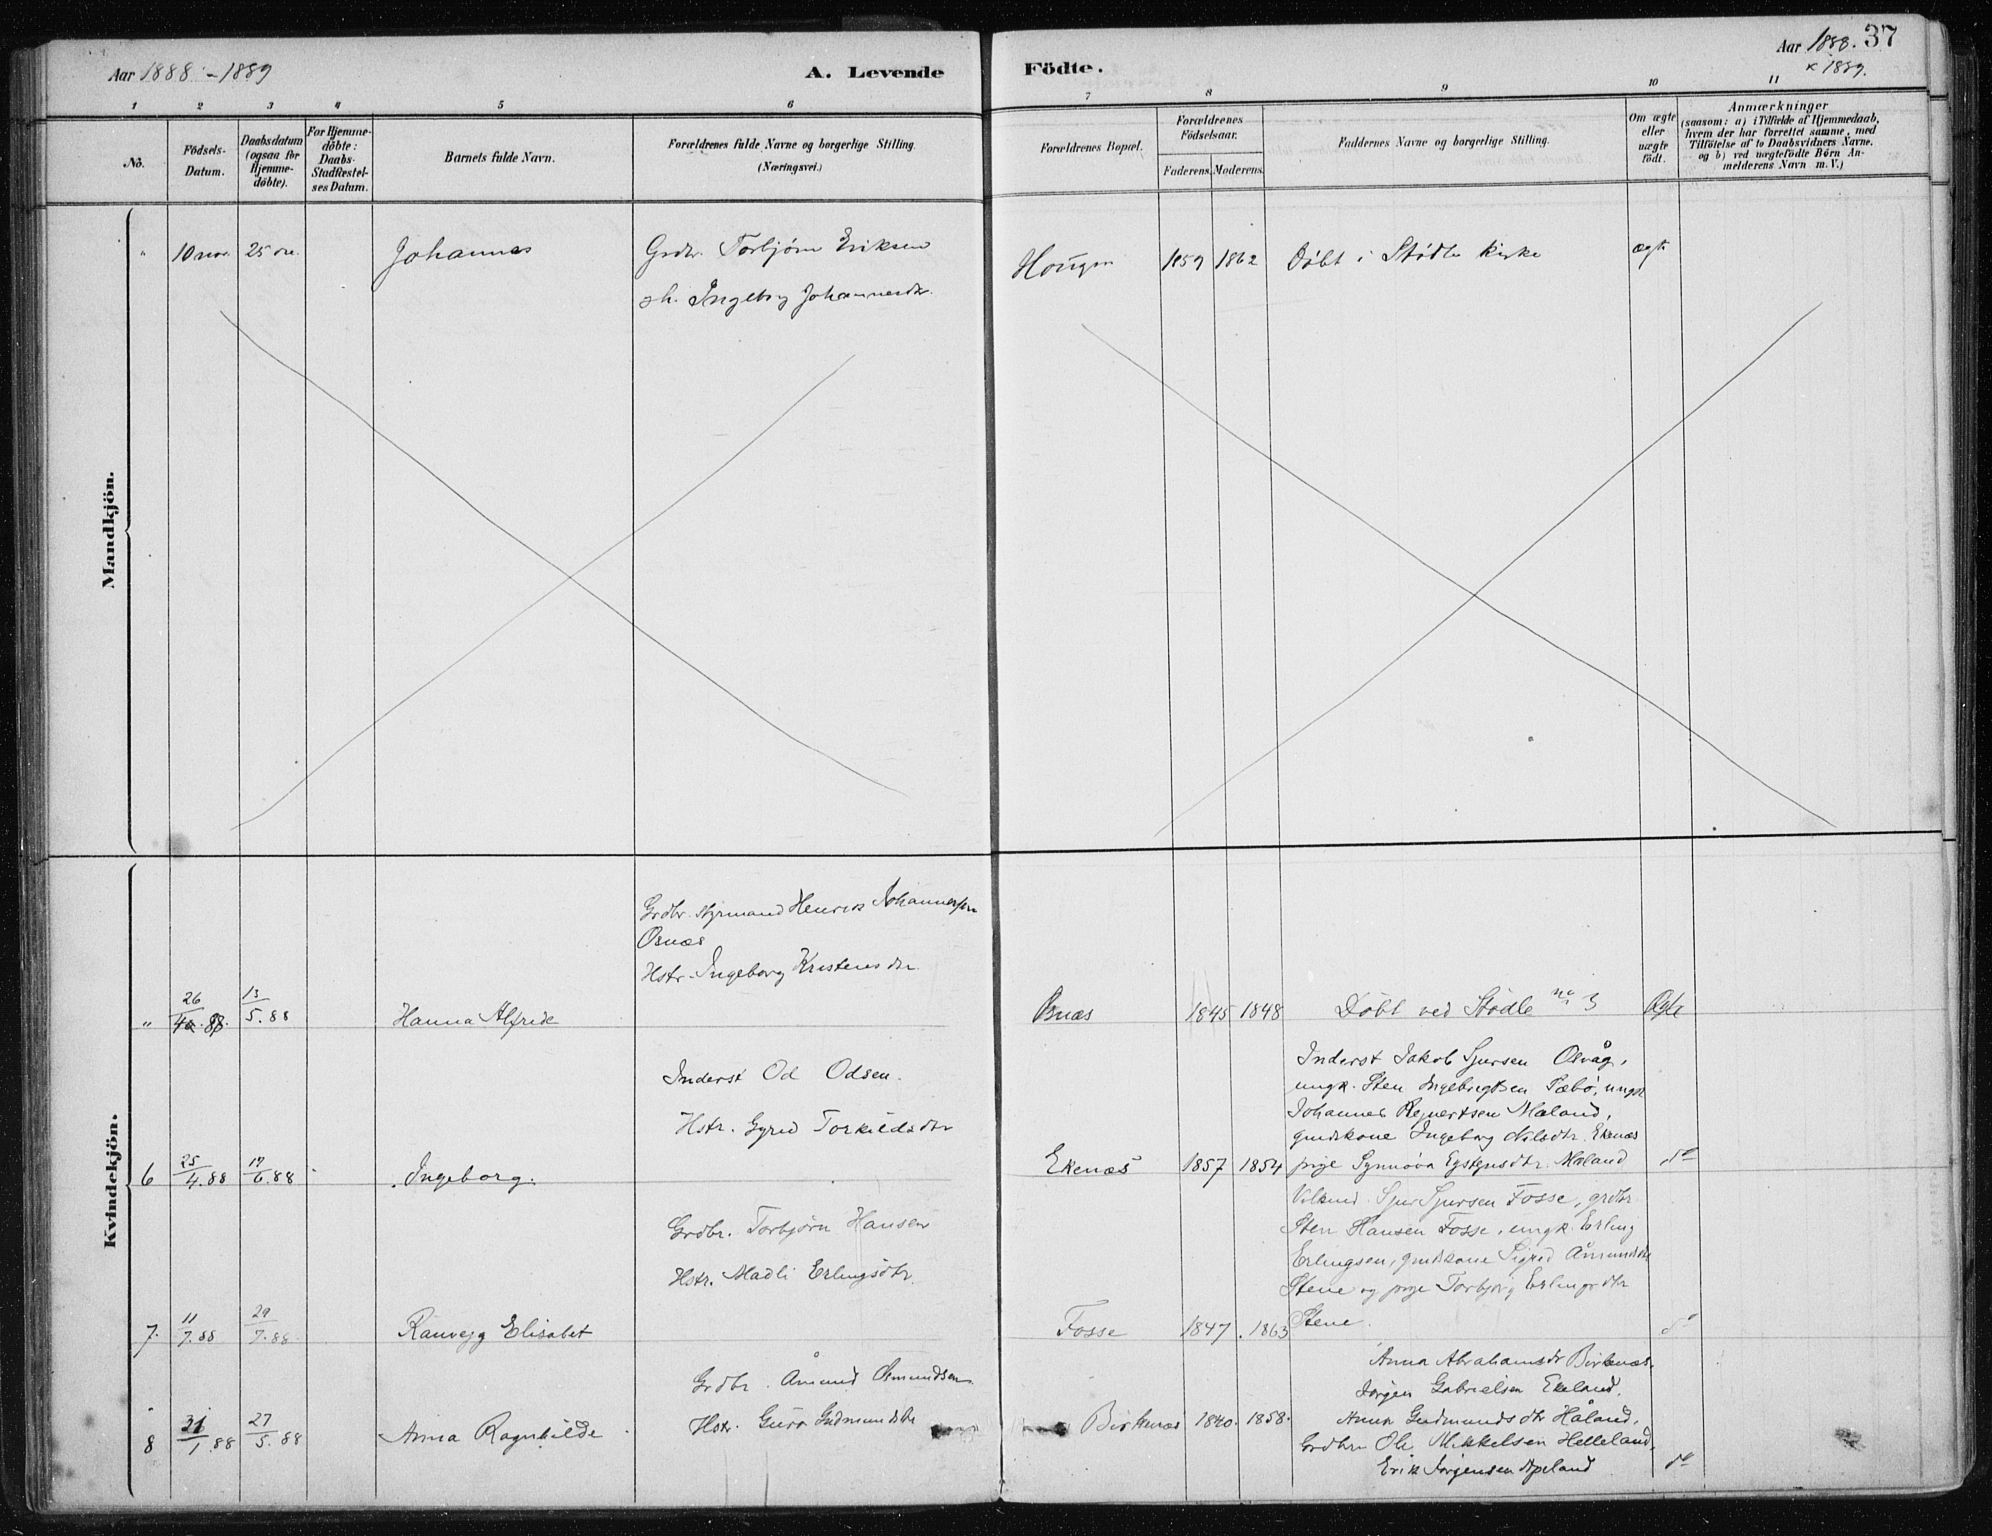 Aar 1888 - 1889
A. Levende
Födte.
Aar 1888. 37
& 1889.
1 2 3 4 5 6 7 8 9 10 11
No.
Födsels-Datum.
Daabsdatum (ogsaa for Hjemme-döbte).
For Hjemme-döbte: Daabs-Stadfæstel-ses Datum.
Barnets fulde Navn.
Forældrenes fulde Navne og borgerlige Stilling.
(Næringsvei.)
Forældrenes Bopæl.
Forældrenes Födselsaar.
Faderens. Moderens.
Faddernes Navne og borgerlige Stilling.
Om ægte eller uægte födt.
Anmærkninger
(saasom: a) i Tilfælde af Hjemmedaab, hvem der har forrettet samme, med Tilföielse af to Daabsvidners Navne. og b) ved uægtefödte Börn An-melderens Navn m. V.)
Mandkjön.
" 10 nov. 25 Johannes Grdbr. Torbjørn Eriksen Hougen 1859 1862 Døbt i Stødle Kirke ægte
Ingeborg Johannesdtr.
Kvindekjön.
Grdbr. styrmand Henrik Johannessen
Osnæs
Hstr. Ingeborg Kristensdtr.
" 26/4 88. 13/5.88 Hanna Alfride Osnæs 1845 1848 Døbt ved Stødle no 3 Ægte
Inderst Od Odsen.
Hstr. Gyrid Torkildsdtr
Inderst Jakob Sjursen Osvåg,
ungk. Sten Ingebrigtsen Sæbø, ungk
Johannes Rejnertsen Mæland,
gmlskone Ingeborg Nilsdtr. Ekenæs
6 25/4.88 17/6.88 Ingeborg. Ekenæs 1857 1854 pige Synnøva Eystensdtr. Mæland do
Grdbr. Torbjørn Hansen
Hstr. Madli Erlingsdtr.
Sjur Sjursen Fosse, grdbr
Sten Hansen Fosse, ungk. Erling
Erlingsen, gmlskone Sigrid Åmundsdtr
Stene og pige Torbjørg Erlingsdtr
7. 11/7.88 29/7.88 Ranvejg Elisabet Fosse 1847. 1863 Stene. do
Grdbr. Åmund Osmundsen
Hstr. Guro Gudmundsdtr
Anna Abrahamsdtr Birknæs.
Jørgen Gabrielsen Ekeland.
8 31/1.88 27/5.88 Anna Ragnhilde Birknæs 1840. 1858. Anna Gudmundsdtr Håland,
Grdbr. Ole Mikkelsen Helleland,
Erik Jørgensen Apeland do